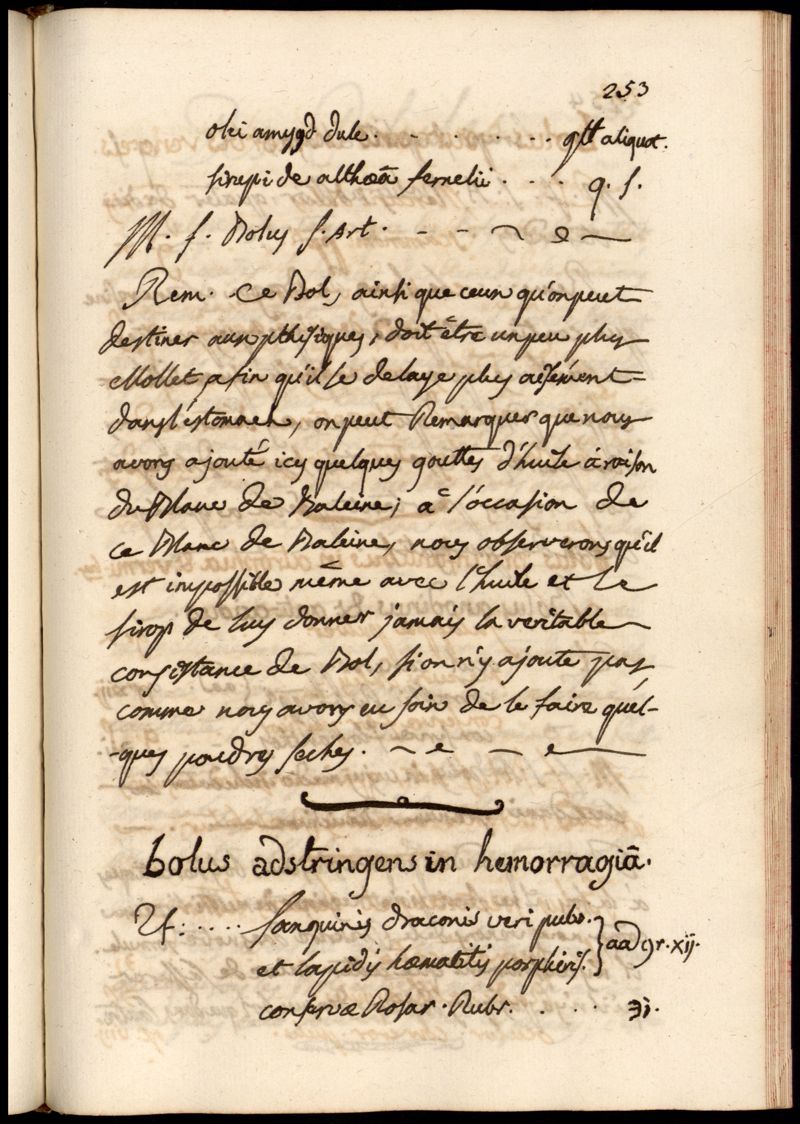 253
olei amygd dulc. - . . . . . . gtt aliquot.
sirupi de althæâ fernelii . . . . q. s.
M. f. Bolus s. Art. - - ~ e —
Rem. Ce Bol, ainsi que ceux qu'on peut
destiner aux phtisiques, doit être un peu plus
Mollet, afin qu'il se delaye plus aisément
dans l'éstomach, on peut Remarquer que nous
avons ajouté icy quelques gouttes d'huile à raison
du Blanc de Baleine; à l'occasion de
ce Blanc de Baleine, nous observerons qu'il
est impossible même avec l'huile et le
sirop de luy donner jamais la veritable
consistance de Bol, si on n'y ajoute pas
comme nous avons eu soin de le faire quél-
-ques poudres seches. ~ e — e —
bolus adstringens in hemorragiâ.
♃: . . . . Sanquinis draconis veri pulv. } aa gr. xij.
et lapidis hæmatitis porphiris.
conservæ Rosar. Rubr. . . . . ʒi.